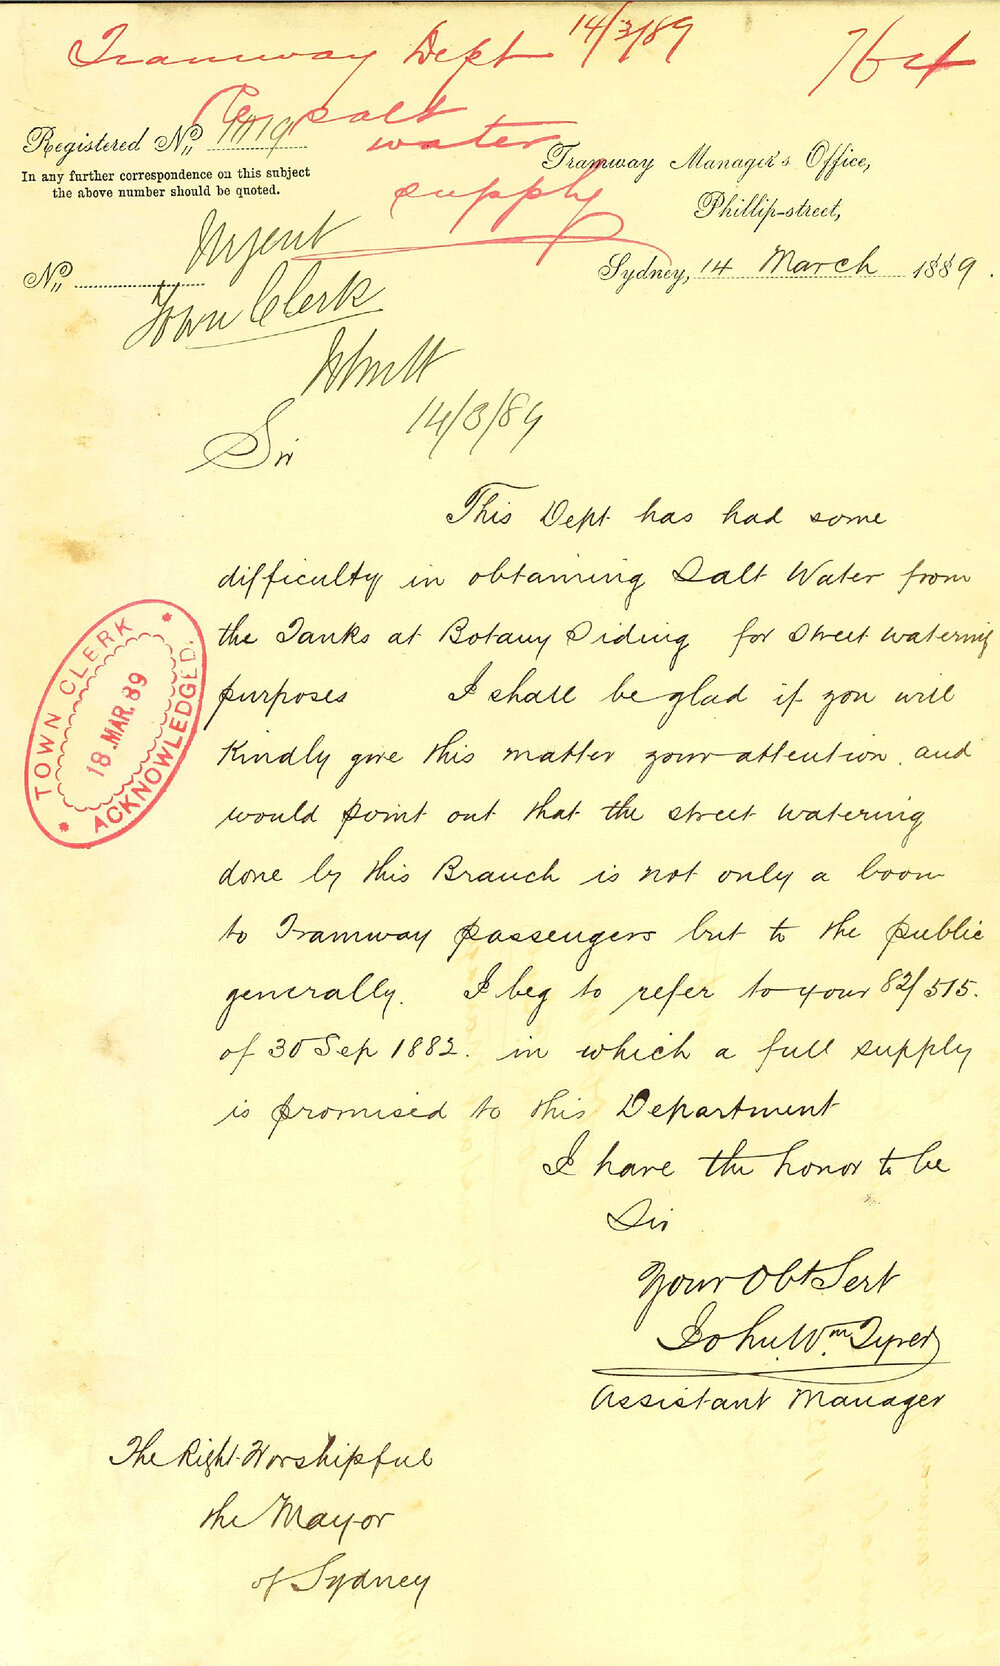 Tramway Dept 14/3/89
764
Re salt
water
supply
Registered No. 1019
In any further correspondence on this subject
the above number should be quoted.
Tramway Manager's Office,
Phillip-street,
Sydney, 14 March 1889.
No.
Urgent
Town Clerk
14/3/89
Sir
This Dept has had some
difficulty in obtaining Salt Water from
the Tanks at Botany Siding for street watering
purposes I shall be glad if you will
Kindly give this matter your attention. and
would point out that the street watering
done by this Branch is not only a boon
to Tramway passengers but to the public
generally. I beg to refer to your 82/515.
of 30 Sep 1882. in which a full supply
is promised to this Department
I have the honor to be
Sir
Your Obt Sert
John. Wm. Tyred
Assistant Manager
The Right Worshipful
the Mayor
of Sydney
TOWN CLERK
18 MAR. 89
ACKNOWLEDGED.